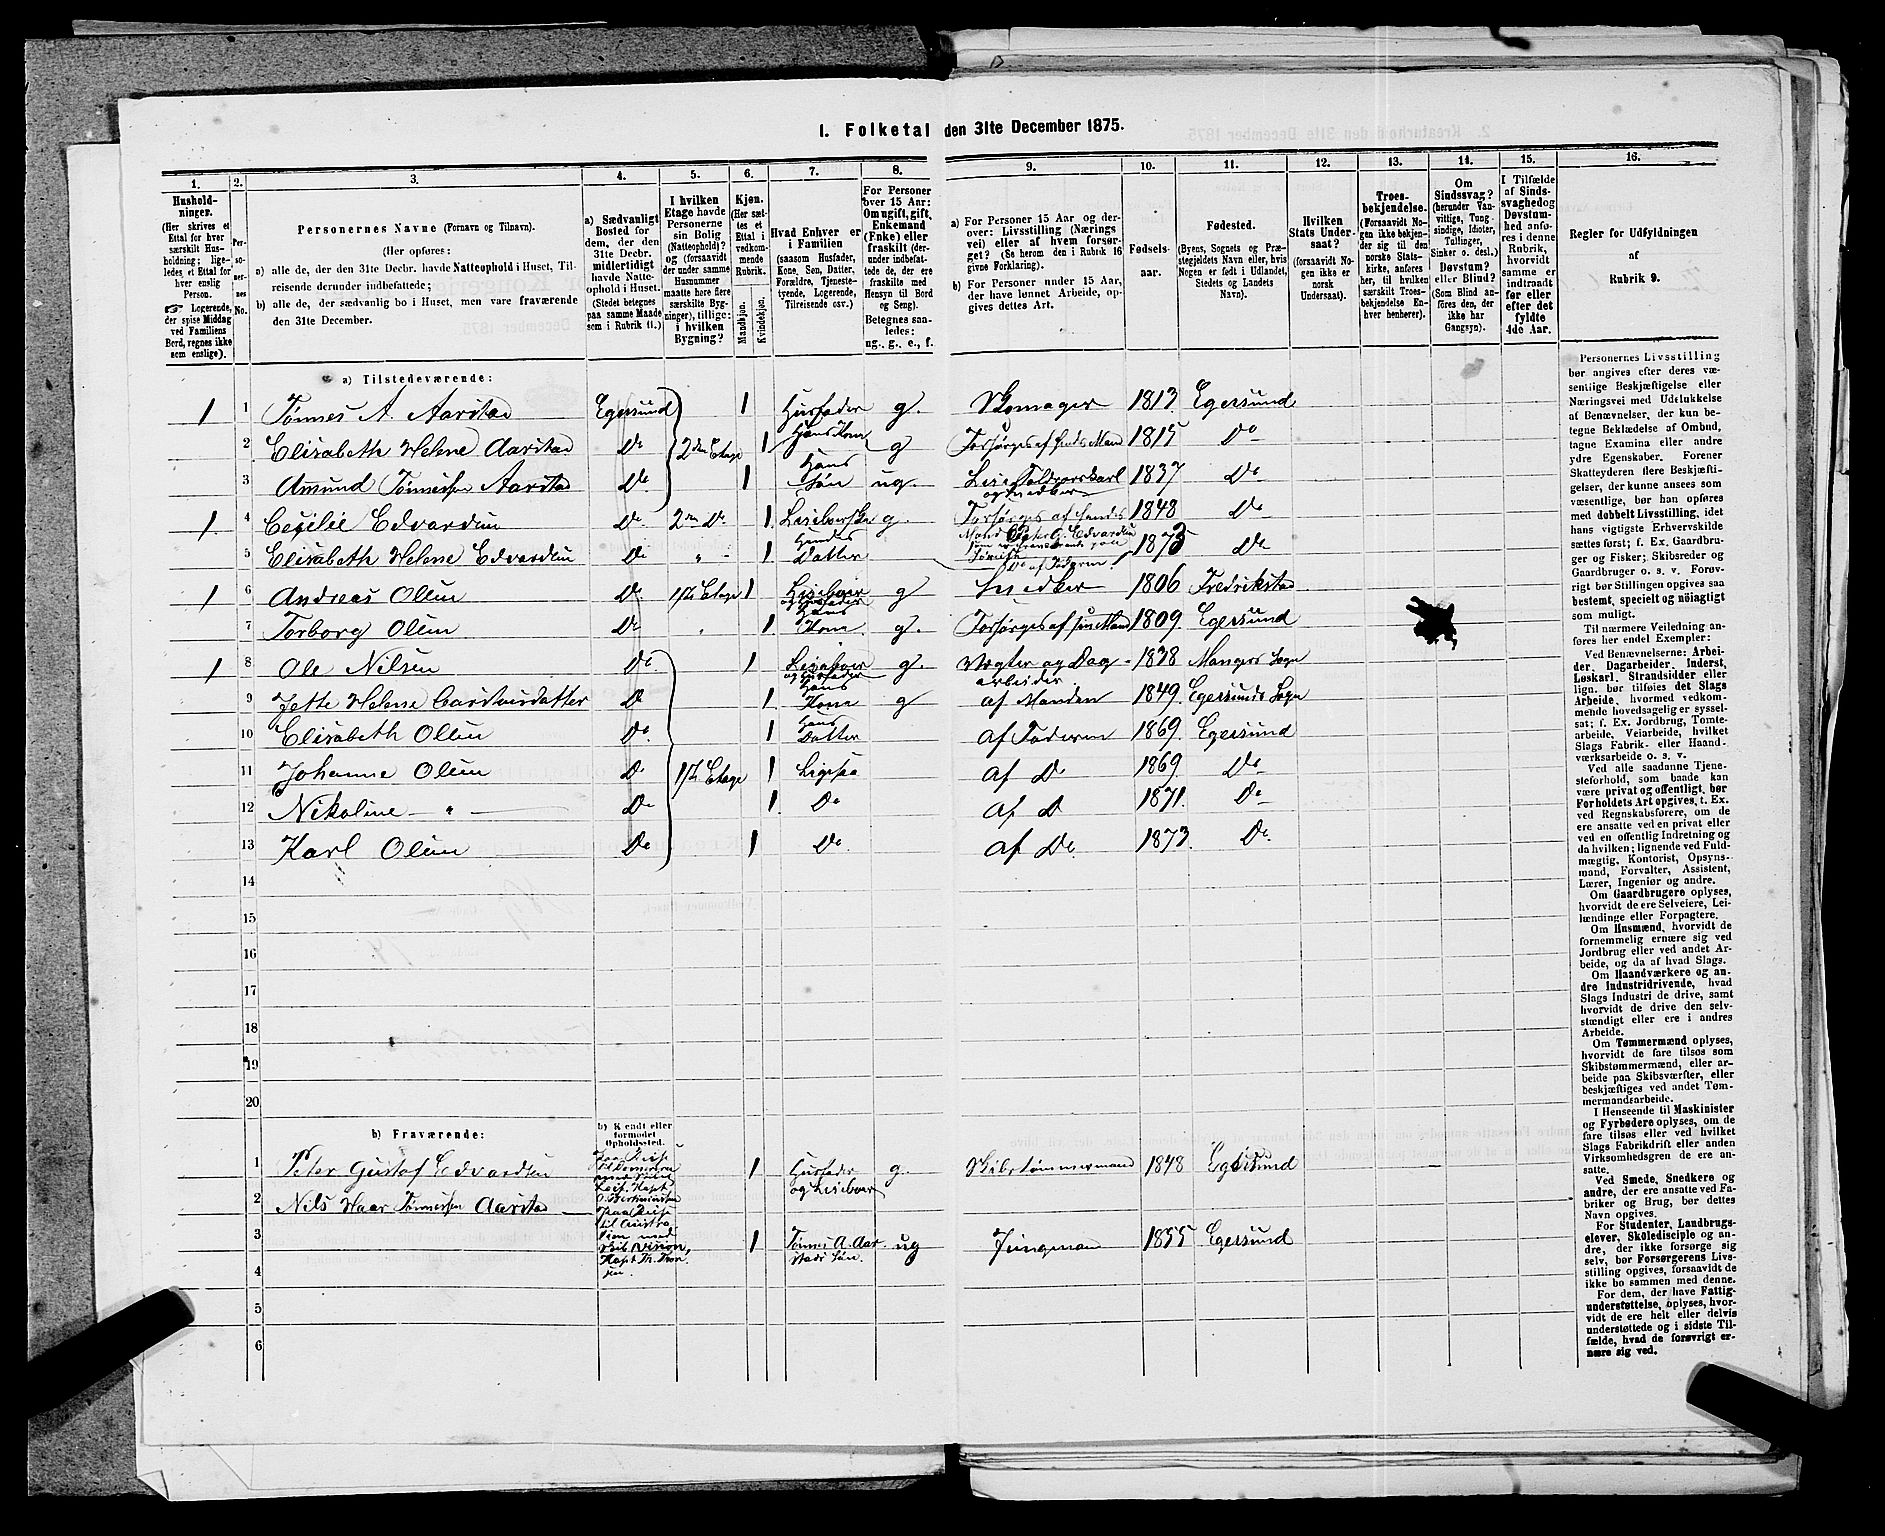 1. Folketal den 31te December 1875.
1. 2. 3. 4. 5. 6. 7. 8. 9. 10. 11. 12. 13. 14. 15. 16.
Hushold-
ninger.
(Her skrives et
Ettal for hver
særskilt Hus-
holdning; lige-
ledes et Ettal for
hver enslig
Person.
☞ Logerende,
der spise Middag
ved Familiens
Bord, regnes ikke
som enslige).
Per-
so-
ner-
nes
No.
Personernes Navne (Fornavn og Tilnavn).
(Her opføres:
a) alle de, der den 31te Decbr. havde Natteophold i Huset, Til-
reisende derunder indbefattede;
b) alle de, der sædvanlig bo i Huset, men vare fraværende
den 31te December.
a) Sædvanligt
Bosted for
dem, der den
31te Decbr.
midlertidigt
havde Natte-
ophold i Huset.
(Stedet betegnes
paa samme Maade
som i Rubrik 11.)
I hvilken
Etage havde
Personerne
sin Bolig
(Natteophold)?
og (forsaavidt
der under samme
Husnummer
maatte høre flere
særskilte Byg-
ninger), tillige:
i hvilken
Bygning?
Kjøn.
(Her sæt-
tes et
Ettal i
vedkom-
mende
Rubrik.
Mandkjøn.
Kvindekjøn.
Hvad Enhver er
i Familien
(saasom Husfader,
Kone, Søn, Datter,
Forældre, Tjeneste-
tyende, Logerende,
Tilreisende osv.)
For Personer
over 15 Aar:
Om ugift, gift,
Enkemand
(Enke) eller
fraskilt (der-
under indbefat-
tede de, der ere
fraskilte med
Hensyn til Bord
og Seng).
Betegnes saa-
ledes:
ug., g., e., f.
a) For Personer 15 Aar og der-
over: Livsstilling (Nærings
vei) eller af hvem forsør-
get? (Se herom den i Rubrik 16
givne Forklaring).
b) For Personer under 15 Aar,
der have lønnet Arbeide, op-
gives dettes Art.
Fødsels-
aar.
Fødested.
(Byens, Sognets og Præ-
stegjeldets Navn eller, hvis
Nogen er født i Udlandet,
Stedets og Landets
Navn).
Hvilken
Stats Under-
saat?
(forsaavidt No-
gen ikke er
norsk
Undersaat).
Troes-
bekjendelse.
(Forsaavidt No-
gen ikke bekjen-
der sig til den
norske Stats-
kirke, anføres
her, til hvilken
særskilt Troes-
bekjendelse En-
hver henhører).
Om
Sindssvag?
(herunder Van-
vittige, Tung-
sindige, Idioter,
Tullinger,
Sinker o. desl.)
Døvstum?
eller Blind?
(Som Blind an-
føres den, der
ikke har
Gangsyn).
I Tilfælde
af Sinds-
svaghed og
Døvstum-
hed anfø-
res i denne
Rubrik,
hvorvidt
samme er
indtraadt
før eller
efter det
fyldte
4de Aar.
Regler for Udfyldningen
af
Rubrik 9.
a) Tilstedeværende:
1 1 Tønnes A. Aarstad Egersund 1 Husfader g. Skomager 1813 Egersund
2 Elisabeth Helene Aarstad Do 2den Etage 1 Hans Kone g Forsørges af hendes Mand 1815 Do
3 Amund Tønnessen Aarstad Do 1 Hans Søn ug og Snedker 1837 Do
1 4 Cecilie Edvardsen Do 2den Do 1 g. Forsørges af hendes 1848 Do
Mand Peter G. Edvardsen
5 Elisabeth Helene Edvardsen Do " 1 Hendes Datter Do af Faderen 1873 Do
1 6 Andreas Olsen Do 1ste Etage 1 og Husfader g Snedker 1806 Fredrikstad
7 Torborg Olsen Do " 1 Hans Kone g. Forsørges af sin Mand 1809 Egersund
1 8 Ole Nilsen Do 1 og Husfader g. Vægter og Dag-
arbeider 1838 Mangers Sogn
9 Jette Helene Do 1 Hans Kone g af Manden 1849 Egersunds Sogn
10 Elisabeth Olsen Do 1 Hans Datter af Faderen 1869 Egersund
11 Johanne Olsen Do 1ste Etage 1 Ligesaa af Do 1869 Do
12 Nikoline " Do 1 Do af D 1871 Do
13 Karl Olsen Do 1 Do af Do 1873 Do
14
15
16
17
18
19
20
b) Fraværende:
b) Kjendt eller
formodet
Opholdssted.
1 Peter Gustaf Edvardsen Paa Reise 1 Husfader
og g. Skibstømmermand 1848 Egersund
2 Nils Haar Tønnessen Aarstad Paa Reise
til Austra-
lien med
Skib Union,
3 1 Tønnes A. Aar-
stads Søn ug Jungmand 1855 Egersund
4
5
6
Personernes Livsstilling
bør angives efter deres væ-
sentlige Beskjæftigelse eller
Næringsvei med Udelukkelse
af Benævnelser, der kun be-
tegne Beklædelse af Ombud,
tagne Examina eller andre
ydre Egenskaber. Forener
Skatteyderen flere Beskjæfti-
gelser, der kunne ansees som
væsentlige, bør han opføres
med dobbelt Livsstilling, idet
hans vigtigste Erhvervskilde
sættes først; f. Ex. Gaardbru-
ger og Fisker; Skibsreder og
Gaardbruger o. s. v. Forøv-
rigt bør Stillingen opgives saa
bestemt, specielt og nøiagtigt
som muligt.
Til nærmere Veiledning an-
føres her endel Exempler:
Ved Benævnelserne: Arbei-
der, Dagarbeider, Inderst,
Løskarl, Strandsidder eller
lign. bør tilføies det Slags
Arbeide, hvormed vedkom-
mende hovedsagelig er syssel-
sat; f. Ex. Jordbrug, Tomte-
arbeide, Veiarbeide, hvilket
Slags Fabrik- eller Haand-
værksarbeide o. s. v.
Ved alle saadanne Tjene-
steforhold, som baade kan
være privat og offentligt, bør
Forholdets Art opgives, t. Ex.
ved Regnskabsførere, om de
ere ansatte ved en privat eller
ved en offentlig Indretning og
da hvilken; lignende ved Fuld-
mægtig, Kontorist, Opsyns-
mand, Forvalter, Assistent,
Lærer, Ingeniør og andre.
Om Gaardbrugere oplyses,
hvorvidt de ere Selveiere, Lei-
lændinge eller Forpagtere.
Om Husmænd, hvorvidt de
fornemmelig ernære sig ved
Jordbrug eller ved andet Ar-
beide, og da af hvad Slags.
Om Haandværkere og an-
dre Industridrivende, hvad
Slags Industri de drive, samt
hvorvidt de drive den selv-
stændigt eller ere i andres
Arbeide.
Om Tømmermænd oplyses,
hvorvidt de fare tilsøs som
Skibstømmermænd, eller ar-
beide paa Skibsværfter, eller
beskjæftiges ved andet Tøm-
mermandsarbeide.
I Henseende til Maskinister
og Fyrbødere oplyses, om de
fare tilsøs eller ved hvilket
Slags Fabrikdrift eller anden
Virksomhedsgren de ere an-
satte.
Ved Smede, Snedkere og
andre, der ere ansatte ved Fa-
briker og Brug, bør dettes
Navn opgives.
For Studenter, Landbrugs-
elever, Skoledisciple og an-
dre, der ikke forsørge sig
selv, bør Forsørgerens Livs-
stilling opgives, forsaavidt de
ikke bo sammen med denne.
For dem, der have Fattig-
understøttelse, oplyses, hvor-
vidt de ere helt eller delvis
understøttede og i sidste Til-
fælde, hvad de forøvrigt er-
nære sig ved.